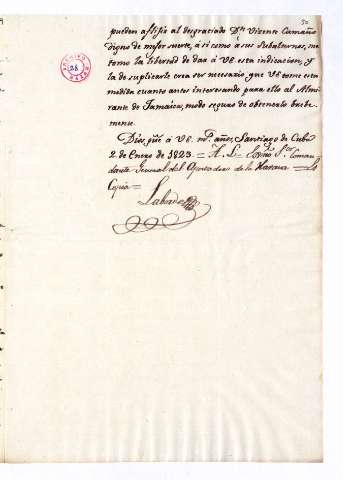 50
pueden asistir al desgraciado Dn. Vizente Camaño
digno de mejor suerte, á si como á sus Subalternos, me
tomo la libertad de dar á VE. esta indicacion, y
la de suplicarle crea ser necesario que VE tome esta
medida cuanto antes interesando para ello al Almi
rante de Jamaica, modo seguro de obtenerlo breve
mente.
Dios gue. á VE. ms. años, Santiago de Cuba
2 de Enero de 1823 = A. L. = Exmo. Sor. Coman
dante General del Apostadero de la Havana = Es
Copia =
Laborde